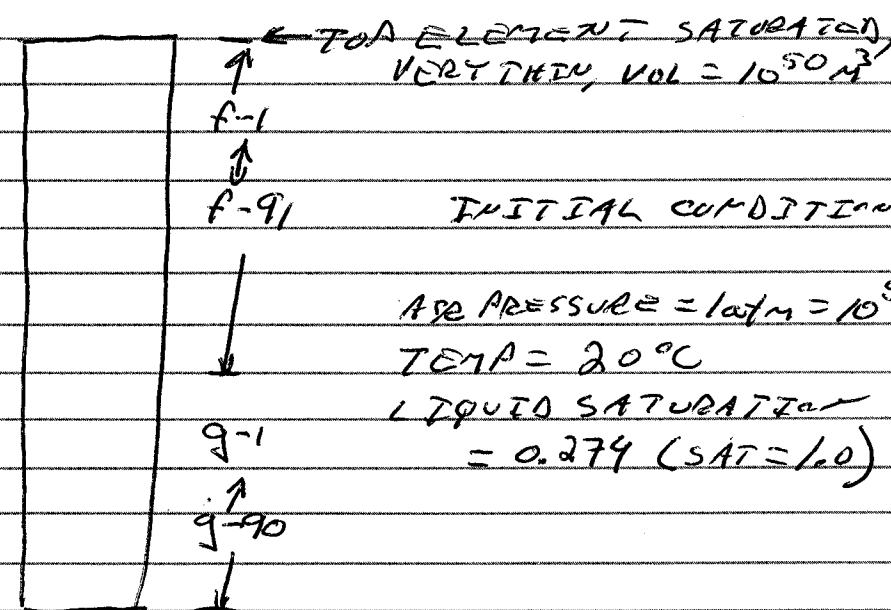 ← TOP ELEMENT SATURATED,
VERY THIN, VOL = 10^50 M^3
f-1
f-91
INITIAL CONDITION
AIR PRESSURE = 1 atm = 10^5
TEMP = 20°C
LIQUID SATURATION
= 0.274 (SAT = 1.0)
g-1
g-90